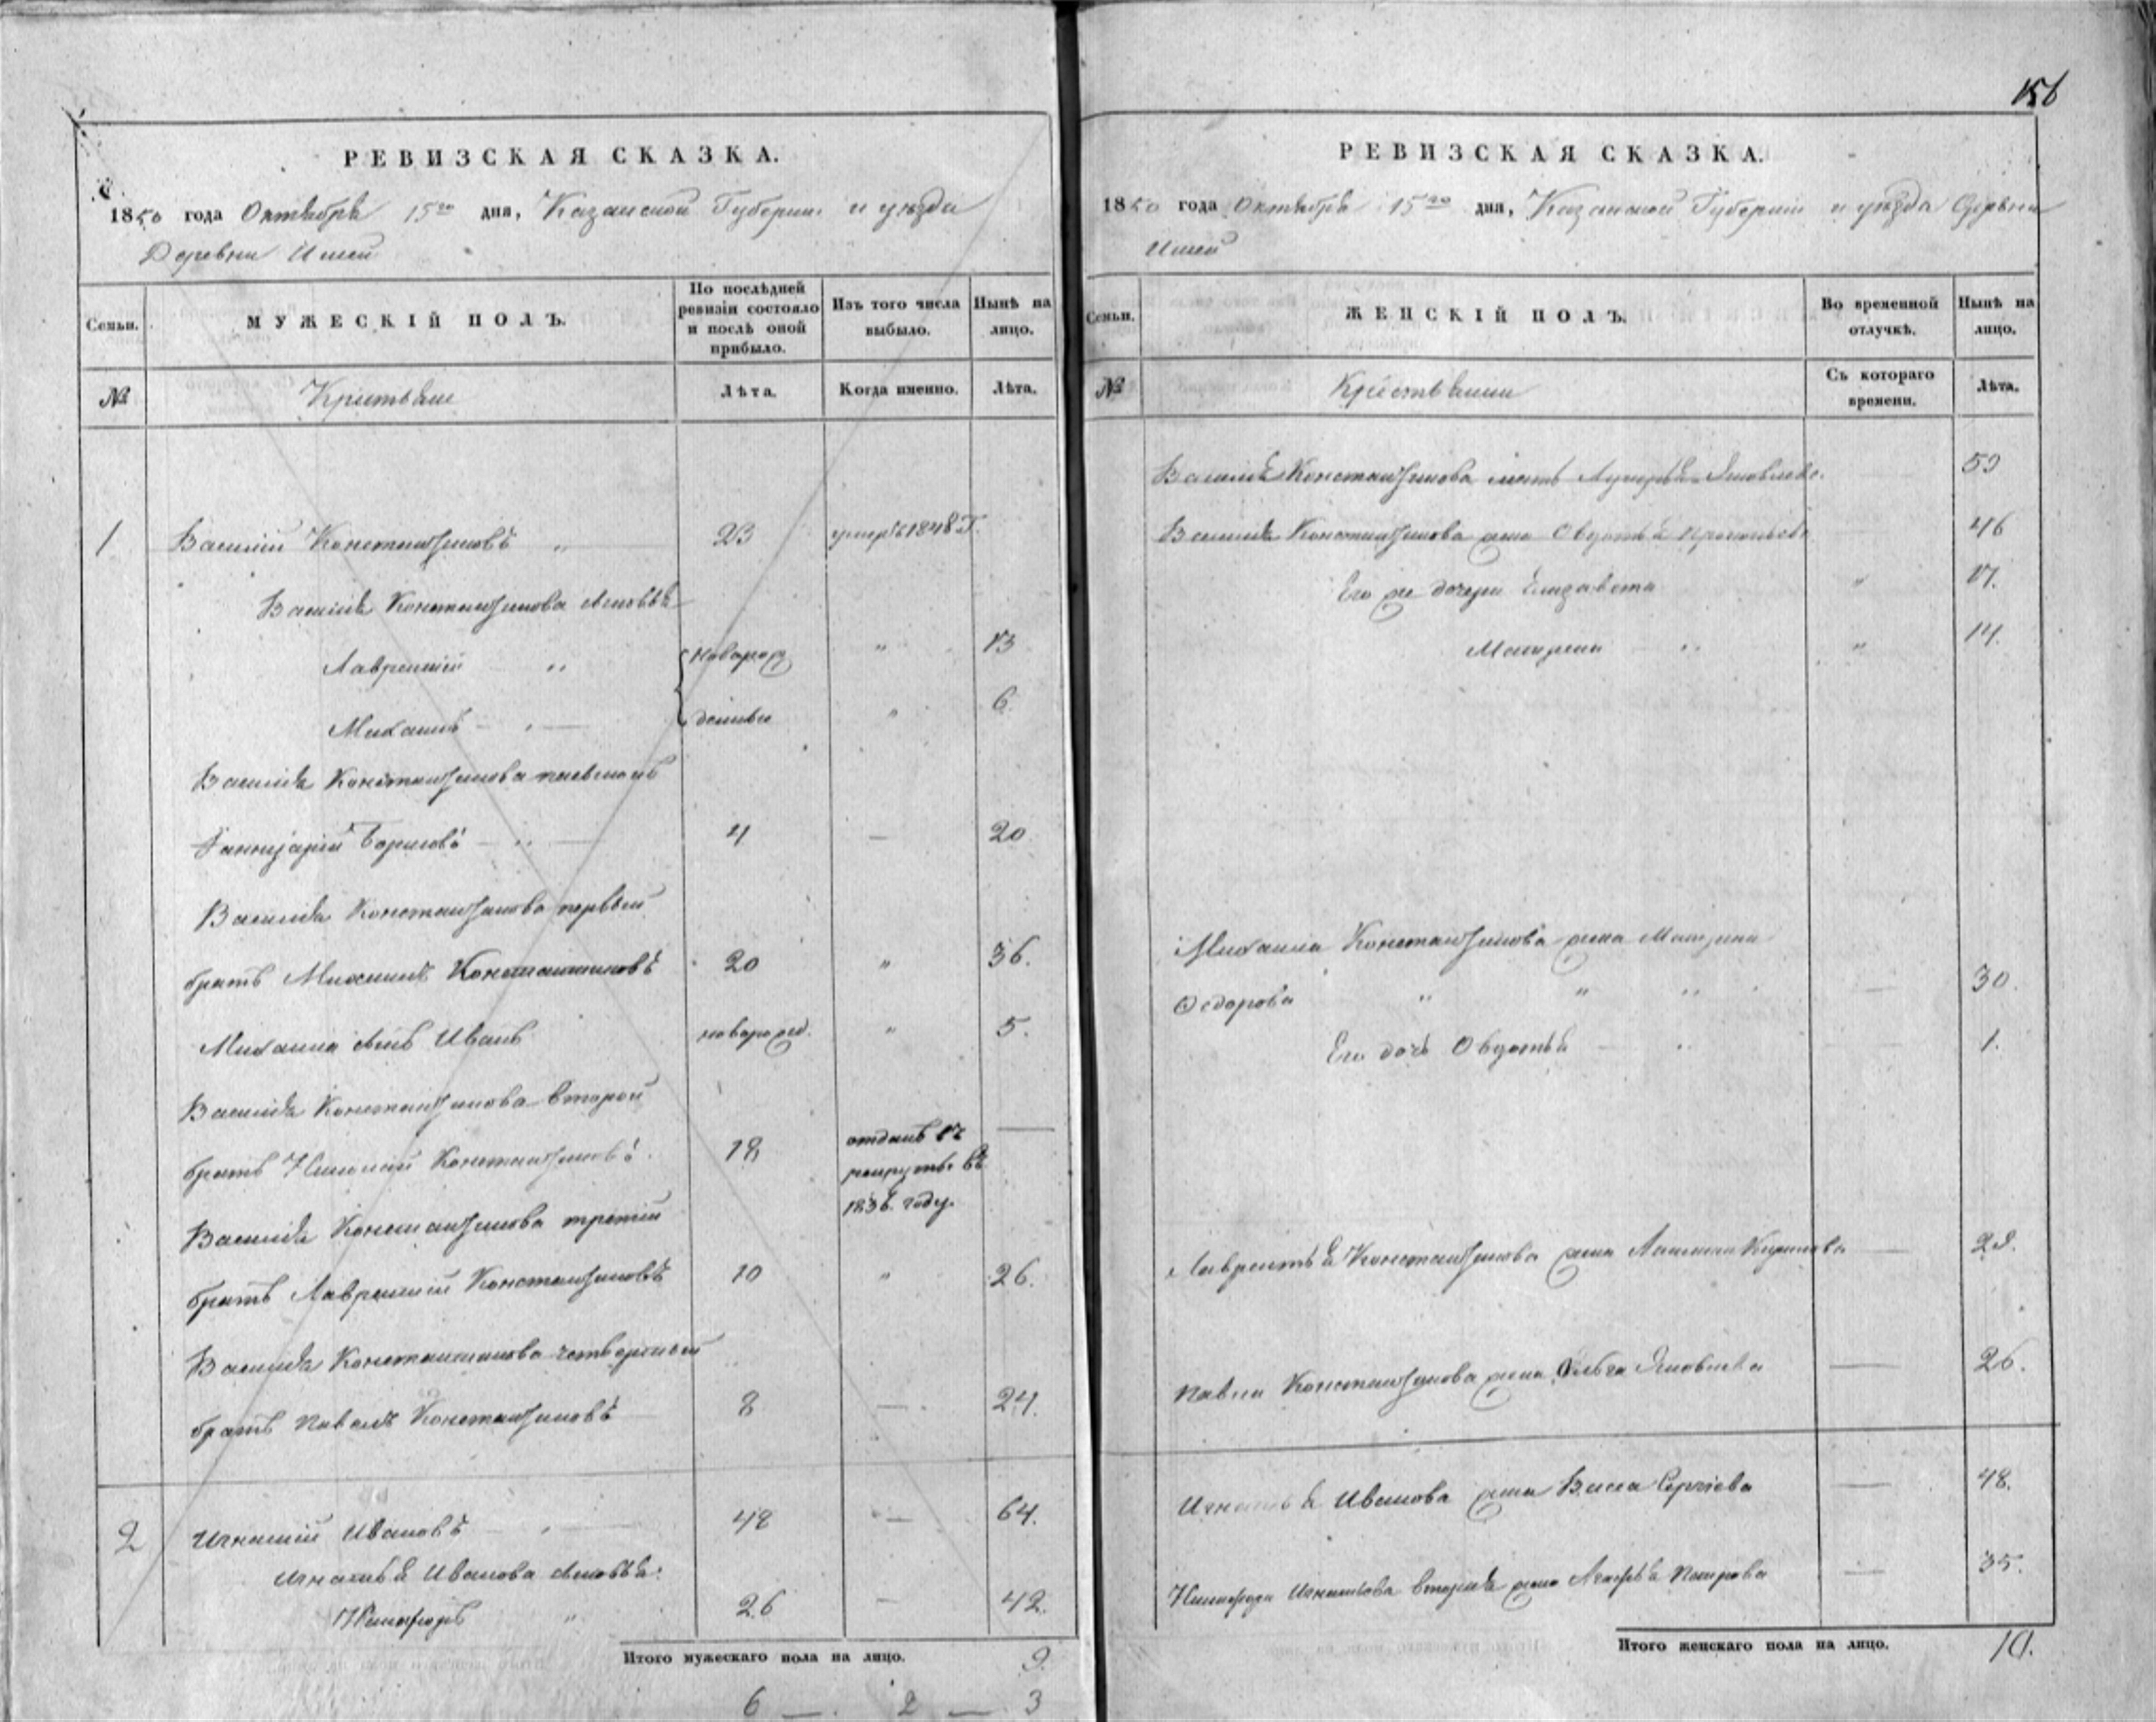 156
РЕВИЗСКАЯ СКАЗКА.
1850 года Октября 15го дня, Казанской Губернии и уѣзда
Деревни
Семьи.
МУЖЕСКІЙ ПОЛЪ.
По послѣдней ревизіи состояло и послѣ оной прибыло.
Изъ того числа выбыло.
Нынѣ на лицо.
№
Крестьяне
Лѣта.
Когда именно.
Лѣта.
1 Василий Константиновъ „ 23 умеръ 1848 г.
Василья Константинова сыновья
Лаврентий „ новорож „ 13
Михаилъ „ денные „ 6
Василья Константинова племянникъ
Борисовъ „ 4 — 20
Василья Константинова первый
братъ Михаилъ Константиновъ 20 „ 36.
Михаила сынъ Иванъ новорожд. „ 5.
Василья Константинова второй
братъ Николай Константиновъ 18 отданъ въ —
рекруты въ
1836 году.
Василья Константинова третий
братъ Лаврентий Константиновъ 10 „ 26.
Василья Константинова четвертый
братъ Павелъ Константиновъ 8 — 24.
2 Игнатий Ивановъ 48 — 64.
Игнатья Иванова сыновья:
Никифоръ „ 26 — 42.
Итого мужескаго пола на лицо. 9.
6 — 2 — 3
РЕВИЗСКАЯ СКАЗКА.
1850 года Октября 15го дня, Казанской Губернии и уѣзда Деревни
Семьи.
ЖЕНСКІЙ ПОЛЪ.
Во временной отлучкѣ.
Нынѣ на лицо.
№
Крестьянки
Съ котораго времени.
Лѣта.
Василья Константинова мать Яковлева — 59
Василья Константинова жена Овдотья — 46
Его же дочери Елизавета „ 17.
Матрена „ „ 14.
Михаила Константинова жена Матрена
Федорова „ „ „ — 30.
Его дочь Овдотья „ — 1.
Лаврентья Константинова жена — 29.
Павла Константинова жена Ольга Яковлева — 26.
Игнатья Иванова жена Васса Сергіева — 48.
Никифора Игнатьева вторая жена Агафья Петрова — 35.
Итого женскаго пола на лицо. 10.